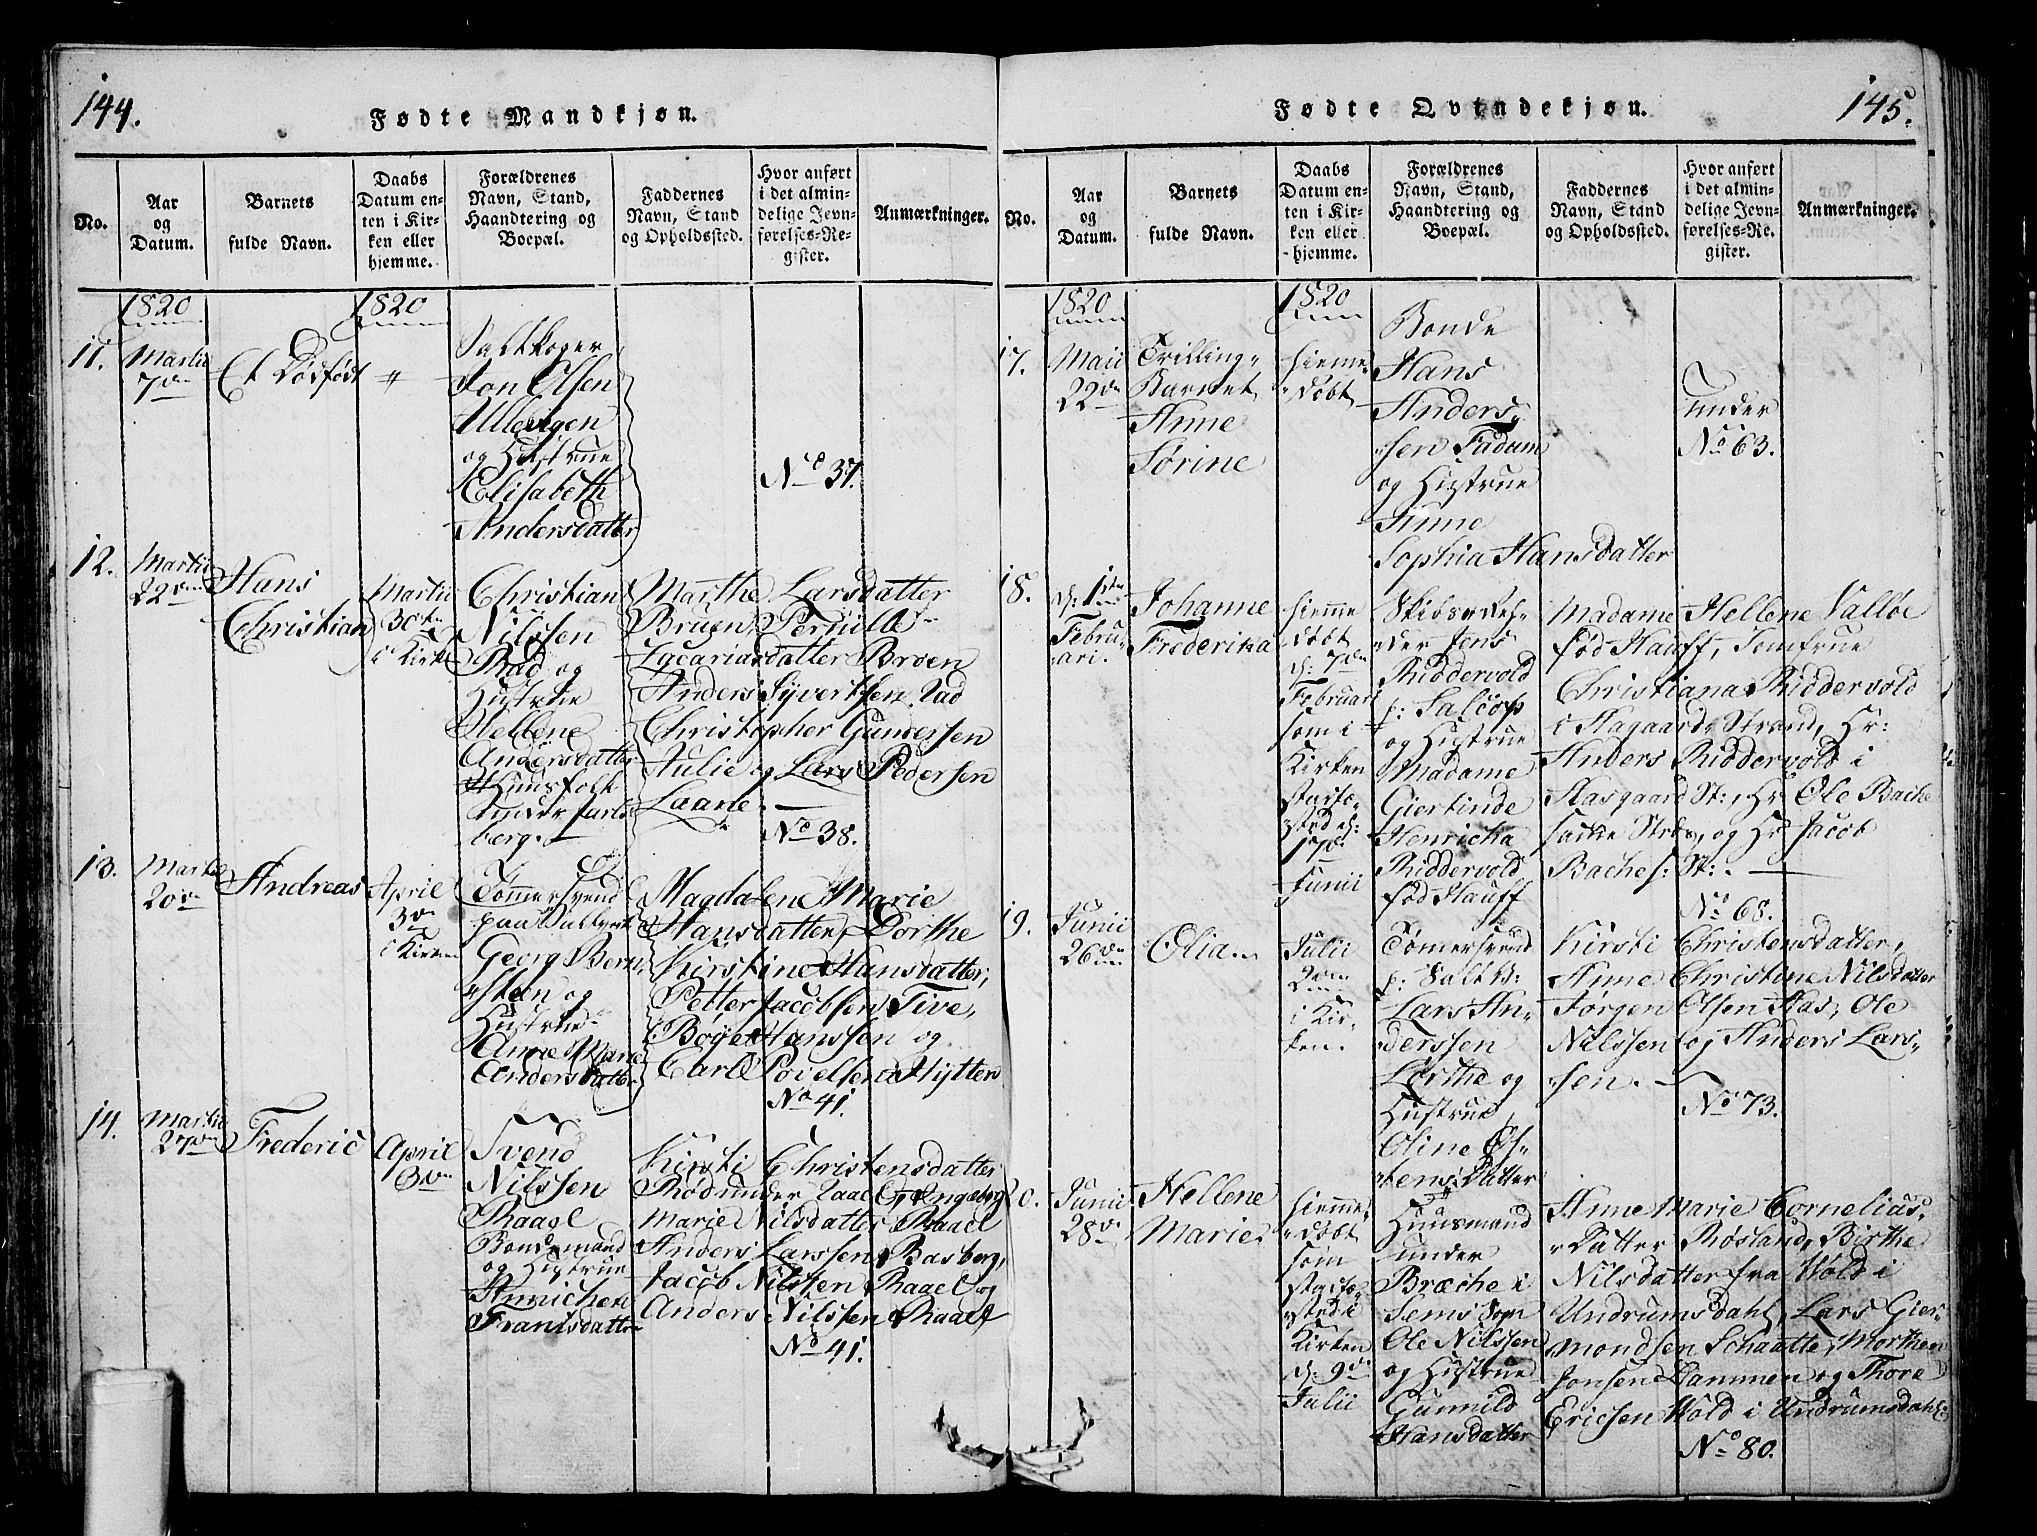 144.
Fødte Mandkjøn.
No.
Aar
og
Datum.
Barnets
fulde Navn.
Daabs
Datum en-
ten i Kir-
ken eller
hjemme.
Forældrenes
Navn, Stand,
Haandtering og
Boepæl.
Faddernes
Navn, Stand
og Opholdssted.
Hvor anført
i det almin-
delige Jevn-
førelses-Re-
gister.
Anmærkninger.
1820
1820
11.
Martii
7de
Et Dødfødt
"
Saltkoger
Jon Olsen
Ullevigen
og Hustrue
Elisabeth
Andersdatter
No 37.
12.
Martii
22de
Hans
Christian
Martii
30te
i Kirke
Christian
Nilssen
Rad og
Hustrue
Hellene
Andersdatter
Huusfolk
under Jarls
berg.
Marthe Larsdatter
Bruen, Pernille
Zacariasdatter Broen
Anders Syvertsen Rad
Christopher Gundersen
Julie og Lars Pedersen
Laane.
No 38.
13.
Martii
20de
Andreas
April
3de
i Kirken
Tømmersvend
paa Saltverk
Georg Bern
sten og
Hustrue
Anne Marie
Andersdatter
Magdalene Marie
Hansdatter, Dorthe
Kirstine Hansdatter,
Petter Jacobsen Tive,
Böye Hanssen og
Carl Povelsen Hytten
No 41.
14.
Martii
27de
Frederic
April
3de
Svend
Nilssen
Raael
Bondemand
og Hustrue
Annichen
Frantsdatter
Kirsti Christensdatter
Rød under Raael, Ingeborg
Marie Nilsdatter Raael
Anders Larssen Basberg,
Jacob Nilssen Raael og
Anders Nilssen Raael
No 41.
145.
Fødte Qvindekjøn.
No.
Aar
og
Datum.
Barnets
fulde Navn.
Daabs
Datum en-
ten i Kir-
ken eller
hjemme.
Forældrenes
Navn, Stand,
Haandtering og
Boepæl.
Faddernes
Navn, Stand
og Opholdssted.
Hvor anført
i det almin-
delige Jevn-
førelses-Re-
gister.
Anmærkninger.
1820
1820
17.
Maii
22de
Trilling-
Barnet
Anne
Sørine
hieme-
døbt
Bonde
Hans
Anders-
sen Fadum
og Hustrue
Anne
Sophia Hansdatter
under
No 63.
18.
d: 1ste
Febru-
ari.
Johanne
Frederika
hieme
døbt
d: 7de
Februari
som i
Kirken
stadfæ-
sted d:
17de
Junii
Skibsrehe-
der Jens
Riddervold
og Hustrue
Madame
Giertinde
Henricka
Riddervold
fød Hauff
Madame Hellene Valløe
fød Hauff, Jomfrue
Christiana Riddervold
i Aagaards Strand, Hr:
Anders Riddervold i
Aasgaard St:, Hr Ole Bache
samme Sted, og Hr Jacob
Baches: St:.
No 68.
19.
Junii
26de
Olia.
Julii
2den
i Kir-
ken.
Tømersvend
p: Salt V:
Lars An-
derssen
Lørthe og
Hustrue
Oline Øs-
tensDatter
Kirsti Christensdatter,
Anne Christine Nilsdatter
Jørgen Olsen Aas, Ole
Nilssen og Anders Lars-
sen.
No 73.
20.
Junii
28de
Hellene
Marie
hieme-
døbt
som
stadfæ-
sted i
Kirken
d: 9de
Julii
Huusmand
under
Bræche i
Sems Sogn
Ole Nilssen
og Hustrue
Gunnild
Hansdatter
Anne Marie Cornelius-
Datter Røsland, Birthe
Nilsdatter fra Wold i
Undrumsdahl, Lars Gier-
mondsen Schaatte, Morthen
Jonsen Dammen og Thore
Ericsen Wold i Undrumsdahl
No 80.